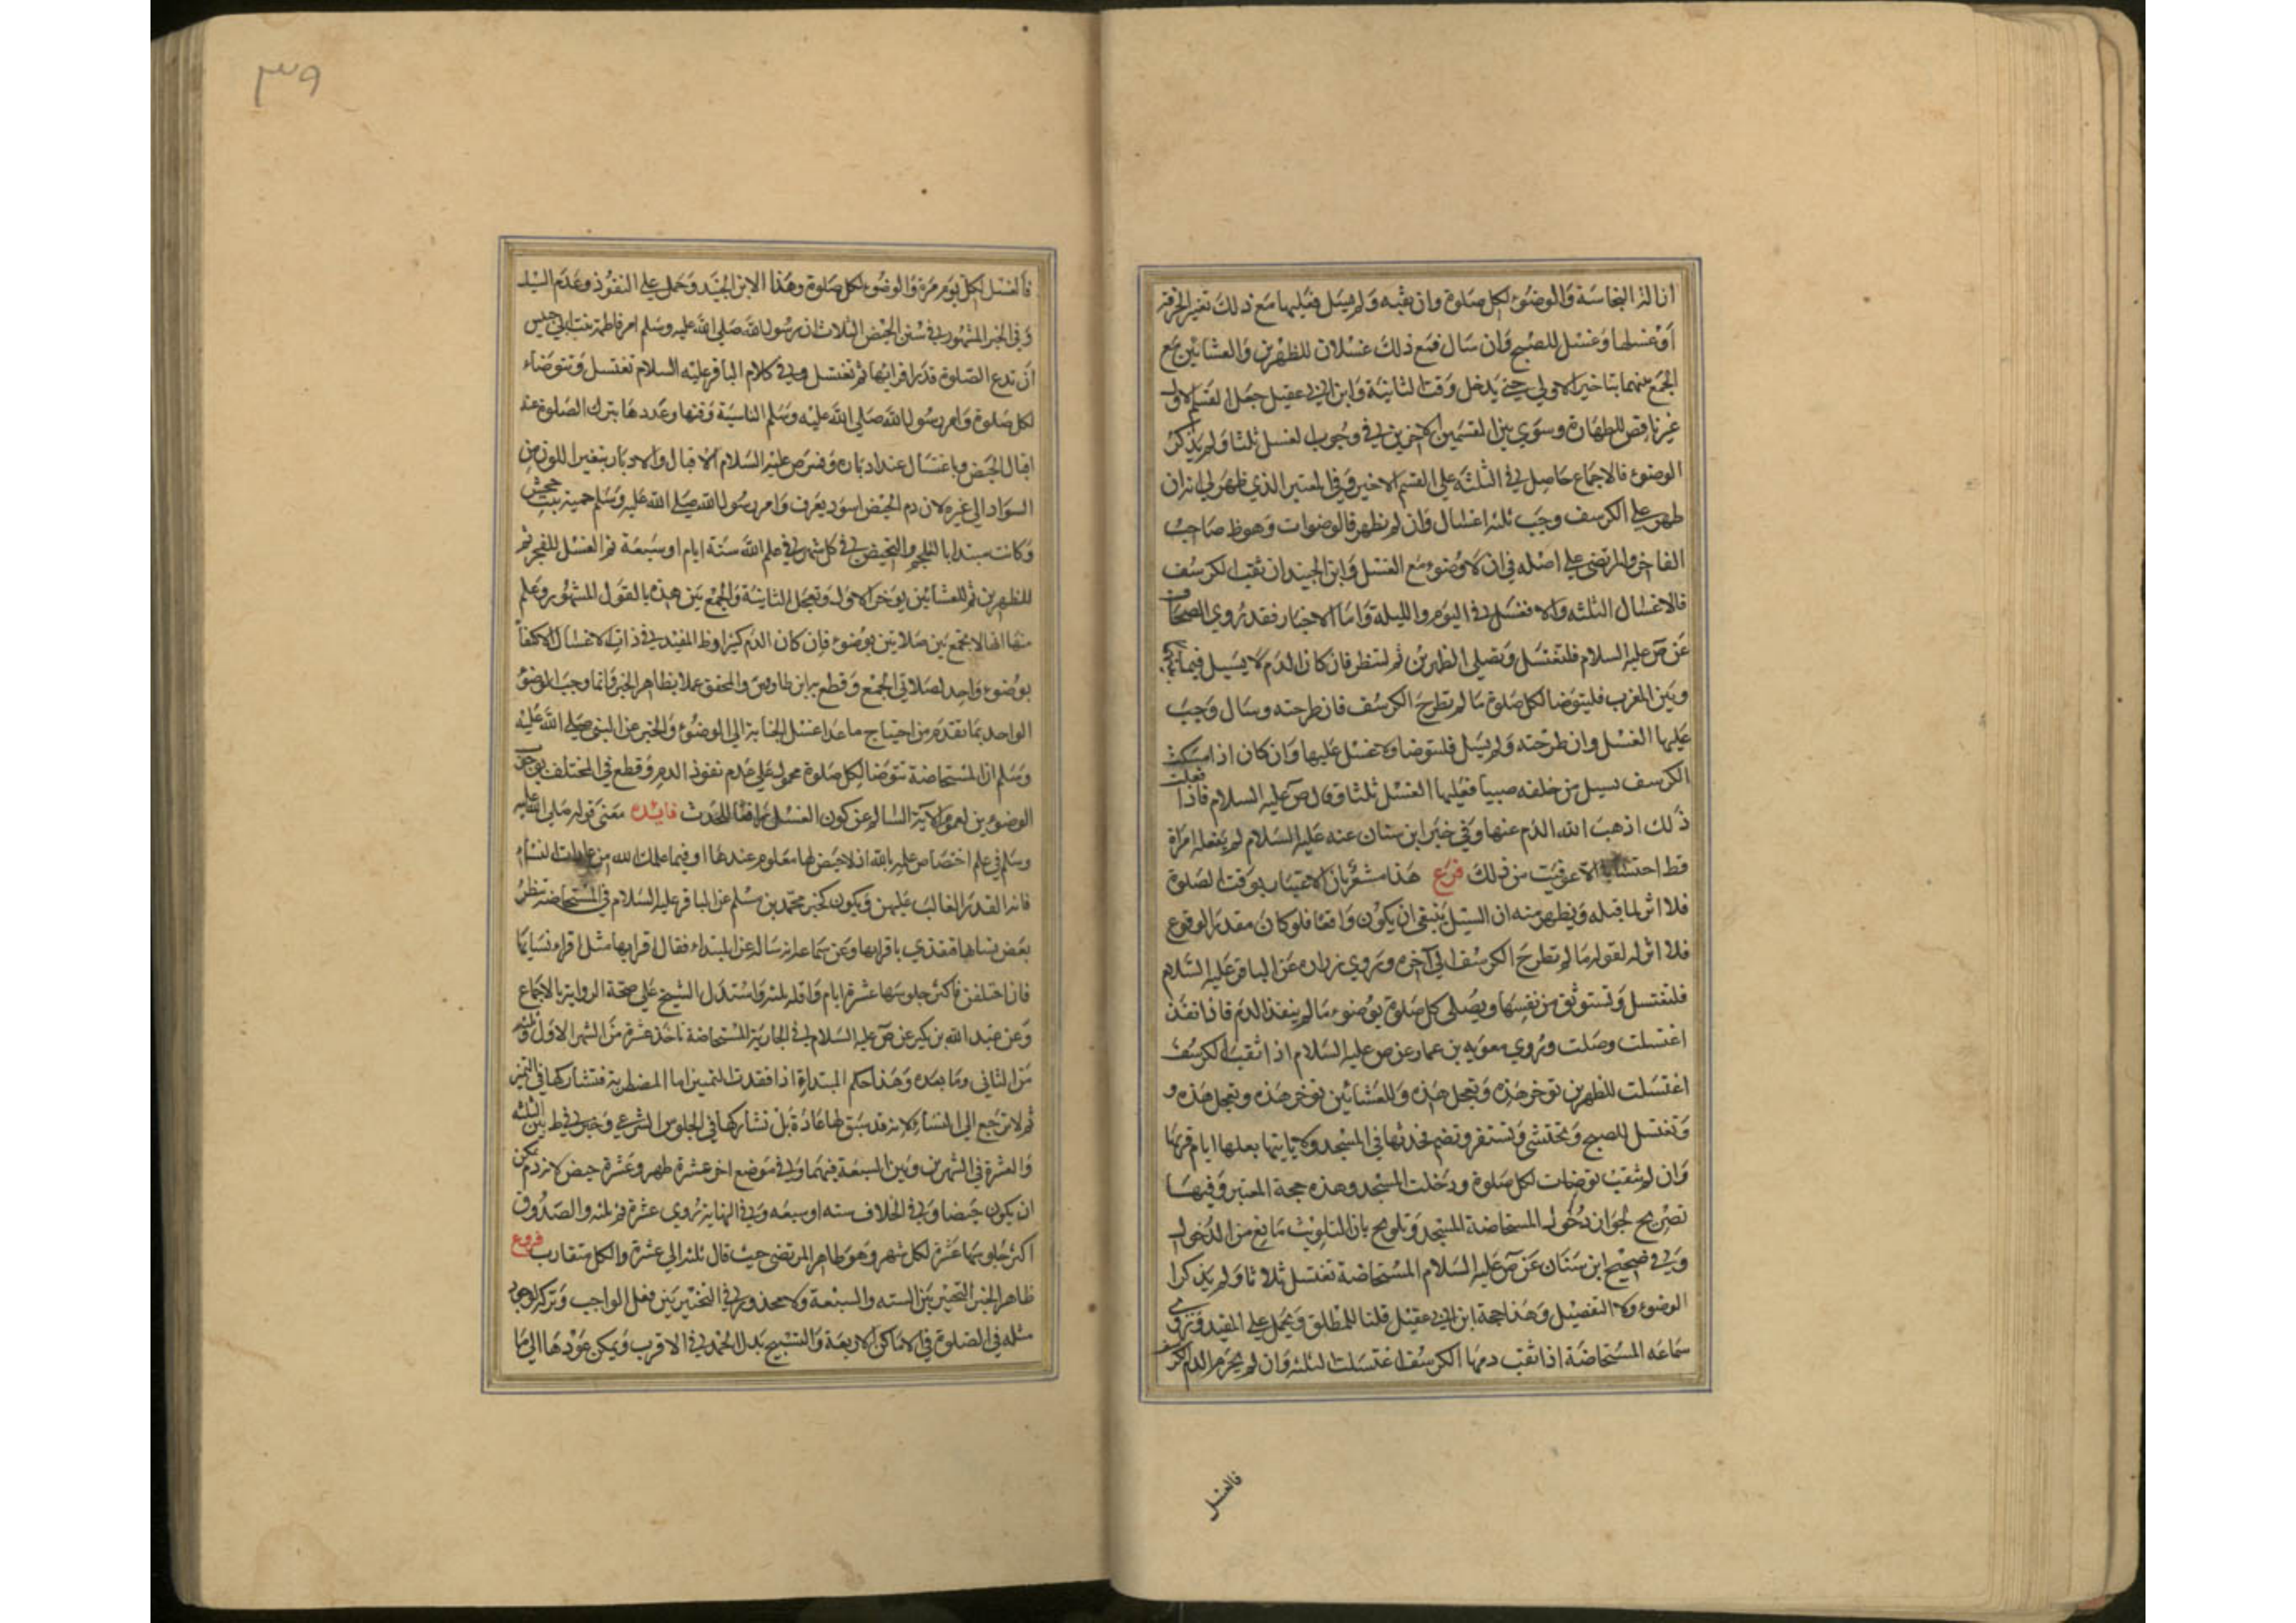 ازالة النجاسة والوضوء لكل صلوة وان ثقبه ولم يسل فعليها مع ذلك تغير الخرقة
او غسلها وغسل للصبح وان سال فمع ذلك غسلان للظهرين والعشائين مع
الجمع بينهما بتاخير الاولى حتى يدخل وقت الثانية وابن ابي عقيل جعل القسم الاول
غير ناقص للطهارة وسوى بين القسمين الاخرين في وجوب الغسل ثلثا ولم يذكر
الوضوء فالاجماع حاصل في الثلثة على القسم الاخير وفي المعتبر الذي ظهر لي انه ان
ظهر على الكرسف وجب ثلثة اغسال وان لم يظهر فالوضوات وهو ظ صاحب
الفاخر والمرتضى على اصله في ان لا وضوء مع الغسل وابن الجنيد ان ثقب الكرسف
فالاغسال الثلثه والا فغسل في اليوم والليلة واما الاخبار فقد روي الصحاف
عن ص عليه السلام فلتغتسل وتصلي الظهرين ثم لتنظر فان كان الدم لا يسيل فيما بينها
وبين المغرب فليتوضا لكل صلوة ما لم تطرح الكرسف فان طرحته وسال وجب
عليها الغسل وان طرحته ولم يسل فلتوضا ولا غسل عليها وان كان اذا امسكت
الكرسف يسيل من خلفه صبيبا فعليها الغسل ثلثا وقال ص عليه السلام فاذا فعلت
ذلك اذهب الله الدم عنها وفي خبر ابن سنان عنه عليه السلام لم يفعله امراة
قط احتسابا الا عوفيت من ذلك فرع هذا مشعر بان الاعتبار بوقت الصلوة
فلا اثر لما قبله ويظهر منه ان السيل ينبغي ان يكون واقعا فلو كان مقدر الوقوع
فلا اثر له لقوله ما لم تطرح الكرسف الى آخره وروي زرارة عن الباقر عليه السلام
فلتغتسل وتستوثق من نفسها ويصلي كل صلوة بوضوء ما لم ينفذ الدم فاذا نفذ
اغتسلت وصلت وروي معويه بن عمار عن ص عليه السلام اذا ثقب الكرسف
اغتسلت للظهرين توخر هذه وتعجل هذه وللعشائين توخر هذه وتعجل هذه و
وتغتسل للصبح وتحتشي وتستثفر وتضم فخذيها في المسجد ولا ياتيها بعلها ايام قرئها
وان لم يثقب توضات لكل صلوة ودخلت المسجد وهذه حجة المعتبر وفيها
تصريح بجواز دخول المستحاضة المسجد وتلويح بان التلويث مانع من الدخول
وفي صحيح ابن سنان عن ص عليه السلام المستحاضة تغتسل ثلاثا ولم يذكرا
الوضوء ولا التفصيل وهذا حجة ابن ابي عقيل قلنا المطلق ويحمل على المقيد وروي
سماعه المستحاضة اذا ثقب دمها الكرسف اغتسلت لثلثه وان لم يجز الدم الكرسف
فالغسل
٣٩
فالغسل لكل يوم مرة والوضوء لكل صلوة وهذا لابن الجنيد وحمل على النفوذ وعدم السيل
وفي الخبر المشهور في سنن الحيض الثلاث ان رسول الله صلى الله عليه وسلم امر فاطمة بنت ابي حبيش
ان تدع الصلوة قدر اقرائها ثم تغتسل وفي كلام الباقر عليه السلام تغتسل وتتوضاء
لكل صلوة وامر رسول الله صلى الله عليه وسلم الناسية وقتها وعددها بترك الصلوة عند
اقبال الحيض وباغتسال عند ادباره وفسر ص عليه السلام الاقبال والادبار بتغير اللون من
السواد الى غيره لان دم الحيض اسود يعرف وامر رسول الله صلى الله عليه وسلم حمنة بنت جحش
وكانت مبتدا بالتلجم والتحيض في كل شهر في علم الله ستة ايام او سبعة ثم الغسل للفجر ثم
للظهرين ثم للعشائين بوخر الاول وتعجل الثانية والجمع بين هذه بالقول المشهور وعلم
منها انها لا تجمع بين صلاتين بوضوء فان كان الدم كثيرا وظ المفيد في ذات الاغسال الاكتفا
بوضوء واحد لصلاتي الجمع وقطع به ابن طاوس والمحقق عملا بظاهر الخبر فانما وجب الوضوء
الواحد بما تقدم من احتياج ما عدا غسل الجنابة الى الوضوء والخبر عن النبي صلى الله عليه
وسلم ان المستحاضة تتوضا لكل صلوة محمول على عدم نفوذ الدم وقطع في المختلف بوجوب
الوضوء من لعموم الآية السالم عن كون الغسل رافعا للحدث فايده معنى قوله صلى الله عليه
وسلم في علم اختصاص علمه بالله اذ لا حيض لها معلوم عندها او فيما علمك الله من عادات النساء
فانه القدر الغالب عليهن ويكون كخبر محمد بن مسلم عن الباقر عليه السلام في المستحاضة تنظر
بعض نساها فتقتدي باقرائها وعن سماعه انه ساله عن المبتداء فقال اقرائها مثل اقراء نسائها
فان اختلفن فاكثر جلوسها عشرة ايام واقله ثلثه واستدل الشيخ على صحة الرواية بالاجماع
وعن عبد الله بن بكير عن ص عليه السلام في الجارية المستحاضة تاخذ عشرة من الشهر الاول وثلثه
من الثاني وما بعده وهذا حكم المبتداة اذا فقدت التمييز اما المضطربة فتشاركها في التميز
ثم لا ترجع الى النساء لانه قد سبق لها عادة بل تشاركها في الجلوس الشرعي وخير في ط بين الثلثه
والعشرة في الشهرين وبين السبعة فيهما وفي موضع اخر عشرة طهر وعشرة حيض لانه دم يمكن
ان يكون حيضا وفي الخلاف سته او سبعه وفي النهاية روي عشرة ثم ثلثه والصدوق
اكثر جلوسها عشرة لكل شهر وهو ظاهر المرتضى حيث قال ثلثه الى عشرة والكل متقارب فروع
ظاهر الخبر التخيير بين السته والسبعة ولا محذور في التخيير بين فعل الواجب وتركه لوجود
مثله في الصلوة في الاماكن الاربعة والتسبيح بدل الحمد في الاقرب ويمكن عودها الى ما